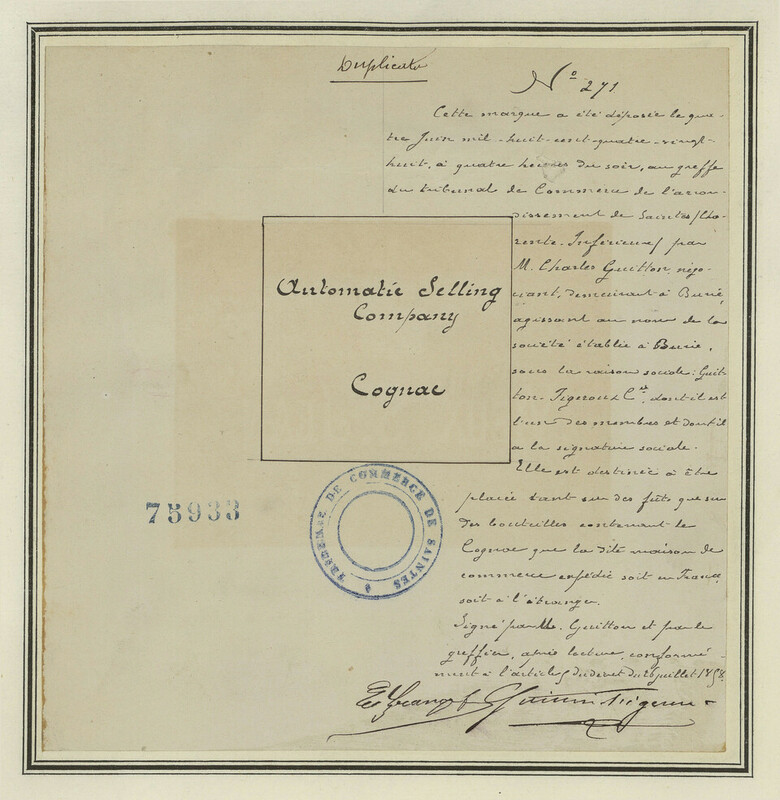 Duplicata
No 271
Cette marque a été déposée le qua-
tre Juin mil-huit-cent-quatre-vingt-
huit, à quatre heures du soir, au greffe
du tribunal de Commerce de l'arron-
dissement de Saintes (Cha-
rente-Inférieure) par
M. Charles Guitton, négo-
ciant, demeurant à Burie,
agissant au nom de la
société établie à Burie,
sous la raison sociale: Guit-
ton-Tigeroux & Cie, dont il est
l'un des membres et dont il
a la signature sociale.
Elle est destinée à être
placée tant sur des fûts que sur
des bouteilles contenant le
Cognac que la dite maison de
commerce expédie soit en France
soit à l'étranger.
Signé par M. Guitton et par le
greffier, après lecture, conformé-
ment à l'article 5 du décret du 26 juillet 1858.
Automatic Selling
Company
Cognac
75933
TRIBUNAL DE COMMERCE DE SAINTES